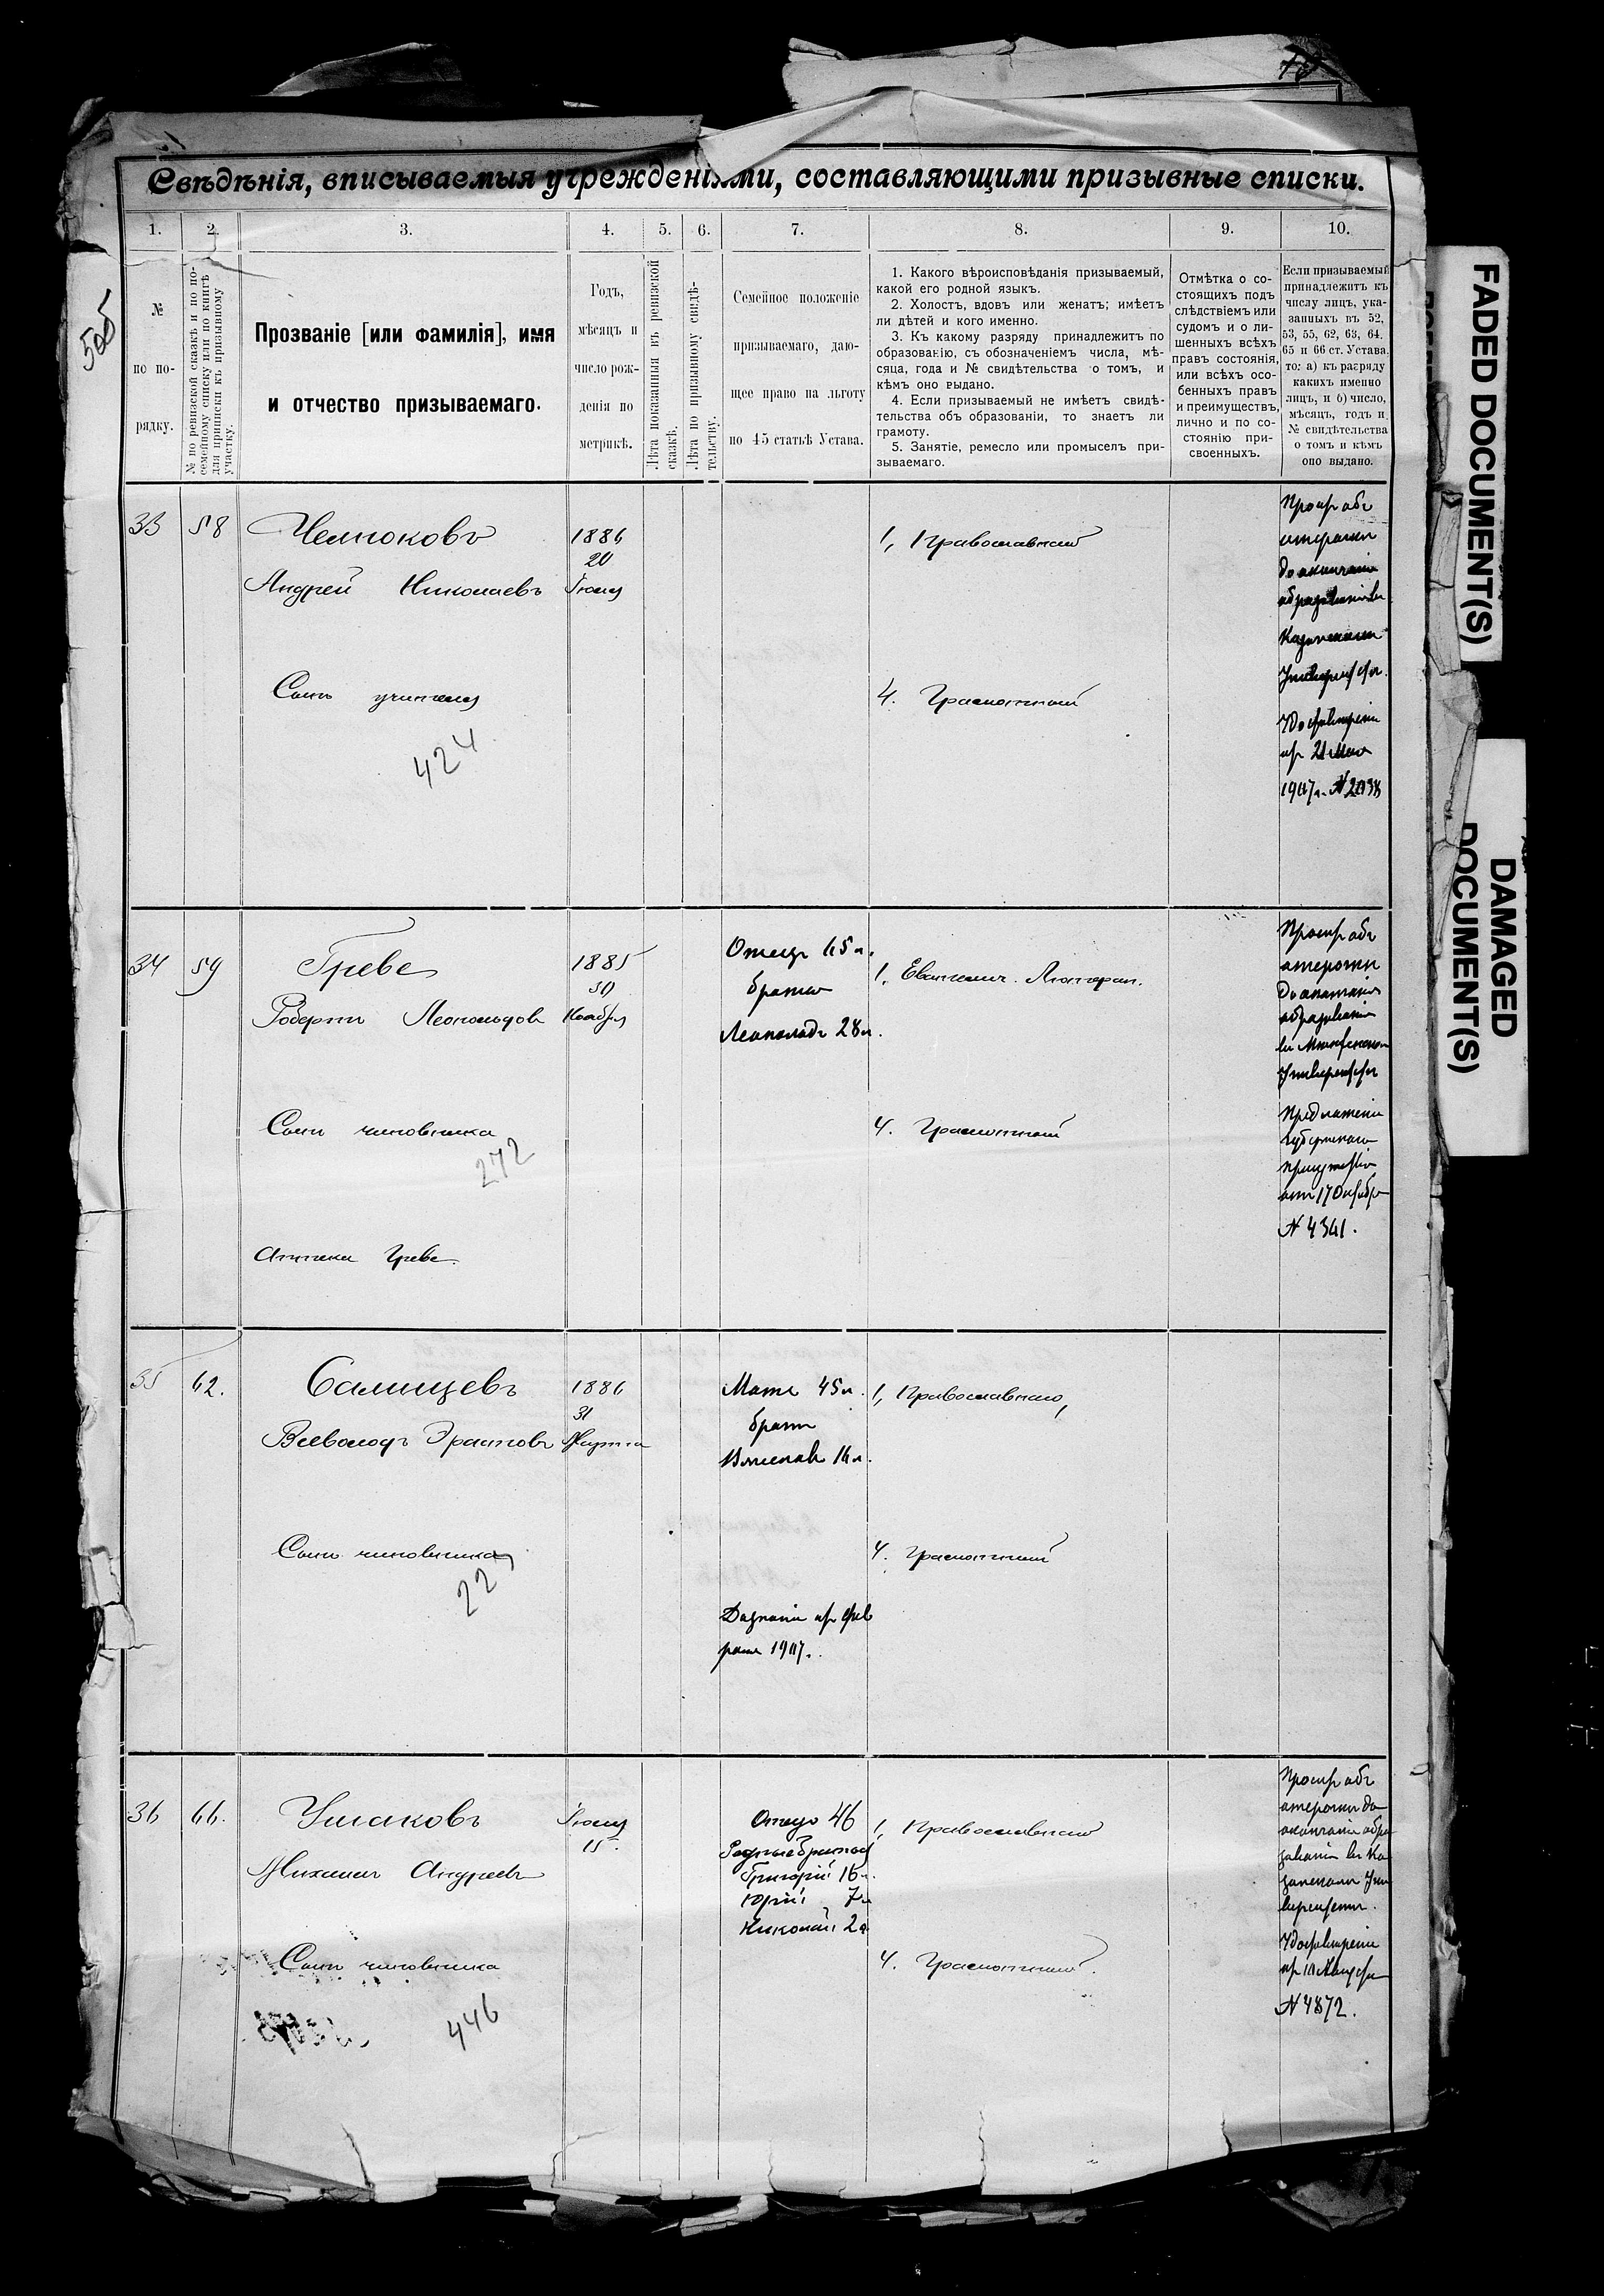 Свѣдѣнія, вписываемыя учрежденіями, составляющими призывные списки.
1.
2.
3.
4.
5.
6.
7.
8.
9.
10.
№
по по-
рядку.
№ по ревизской сказкѣ и по по-
семейному списку или по книгѣ
для приписки къ призывному
участку.
Прозваніе [или фамилія], имя
и отчество призываемаго.
Годъ,
мѣсяцъ и
число рож-
денія по
метрикѣ.
Лѣта показанныя въ ревизской
сказкѣ.
Лѣта по призывному свидѣ-
тельству.
Семейное положеніе
призываемаго, даю-
щее право на льготу
по 45 статьѣ Устава.
1. Какого вѣроисповѣданія призываемый,
какой его родной языкъ.
2. Холостъ, вдовъ или женатъ; имѣетъ
ли дѣтей и кого именно.
3. Къ какому разряду принадлежитъ по
образованію, съ обозначеніемъ числа, мѣ-
сяца, года и № свидѣтельства о томъ, и
кѣмъ оно выдано.
4. Если призываемый не имѣетъ свидѣ-
тельства объ образованіи, то знаетъ ли
грамоту.
5. Занятіе, ремесло или промыселъ при-
зываемаго.
Отмѣтка о со-
стоящихъ подъ
слѣдствіемъ или
судомъ и о ли-
шенныхъ всѣхъ
правъ состоянія,
или всѣхъ осо-
бенныхъ правъ
и преимуществъ,
лично и по со-
стоянію при-
своенныхъ.
Если призываемый
принадлежитъ къ
числу лицъ, ука-
занныхъ въ 52,
53, 55, 62, 63, 64,
65 и 66 ст. Устава,
то: а) къ разряду
какихъ именно
лицъ, и б) число,
мѣсяцъ, годъ и
№ свидѣтельства
о томъ и кѣмъ
оно выдано.
33
58
Челноковъ
Андрей Николаевъ
1886
20
Іюля
Сынъ учителя
424
1, Православный
4. Грамотный
Проситъ объ
отсрочки
до окончанія
образованія въ
Казанскомъ
Университетѣ.
Удостовѣреніе
отъ 21 Мая
1907 г. №
34
59
Греве
Робертъ Леопольдовъ
1885
30
Ноября
Сынъ чиновника
272
Аптека Греве.
Отецъ 65 л.
братъ
Леопольдъ 28 л.
1, Евангелич. Лютеран.
4. Грамотный
Проситъ объ
отсрочки
до окончанія
образованія
въ
Университетѣ
Предложеніе
Губернскаго
Присутствія
отъ 17 Октября
№ 4341.
35
62.
Салищевъ
Всеволодъ Эрастовъ
1886
31
Марта
Сынъ чиновника
Мать 45 л.
братъ
16 л.
Дознаніе отъ Фев
раля 1907.
1, Православнаго,
4. Грамотный
36
66.
Ушаковъ
Михаилъ Андреевъ
Іюля
15.
Сынъ чиновника
446
Отецъ 46
Родные братья
Григорій 16 л.
Юрій 7 л
Николай 2 л
1, Православный
4. Грамотный.
Проситъ объ
отсрочки до
окончанія обра
зованія въ Ка
занскомъ Уни
верситетѣ.
Удостовѣреніе
№ 4872.
FADED DOCUMENT(S)
DAMAGED
DOCUMENT(S)